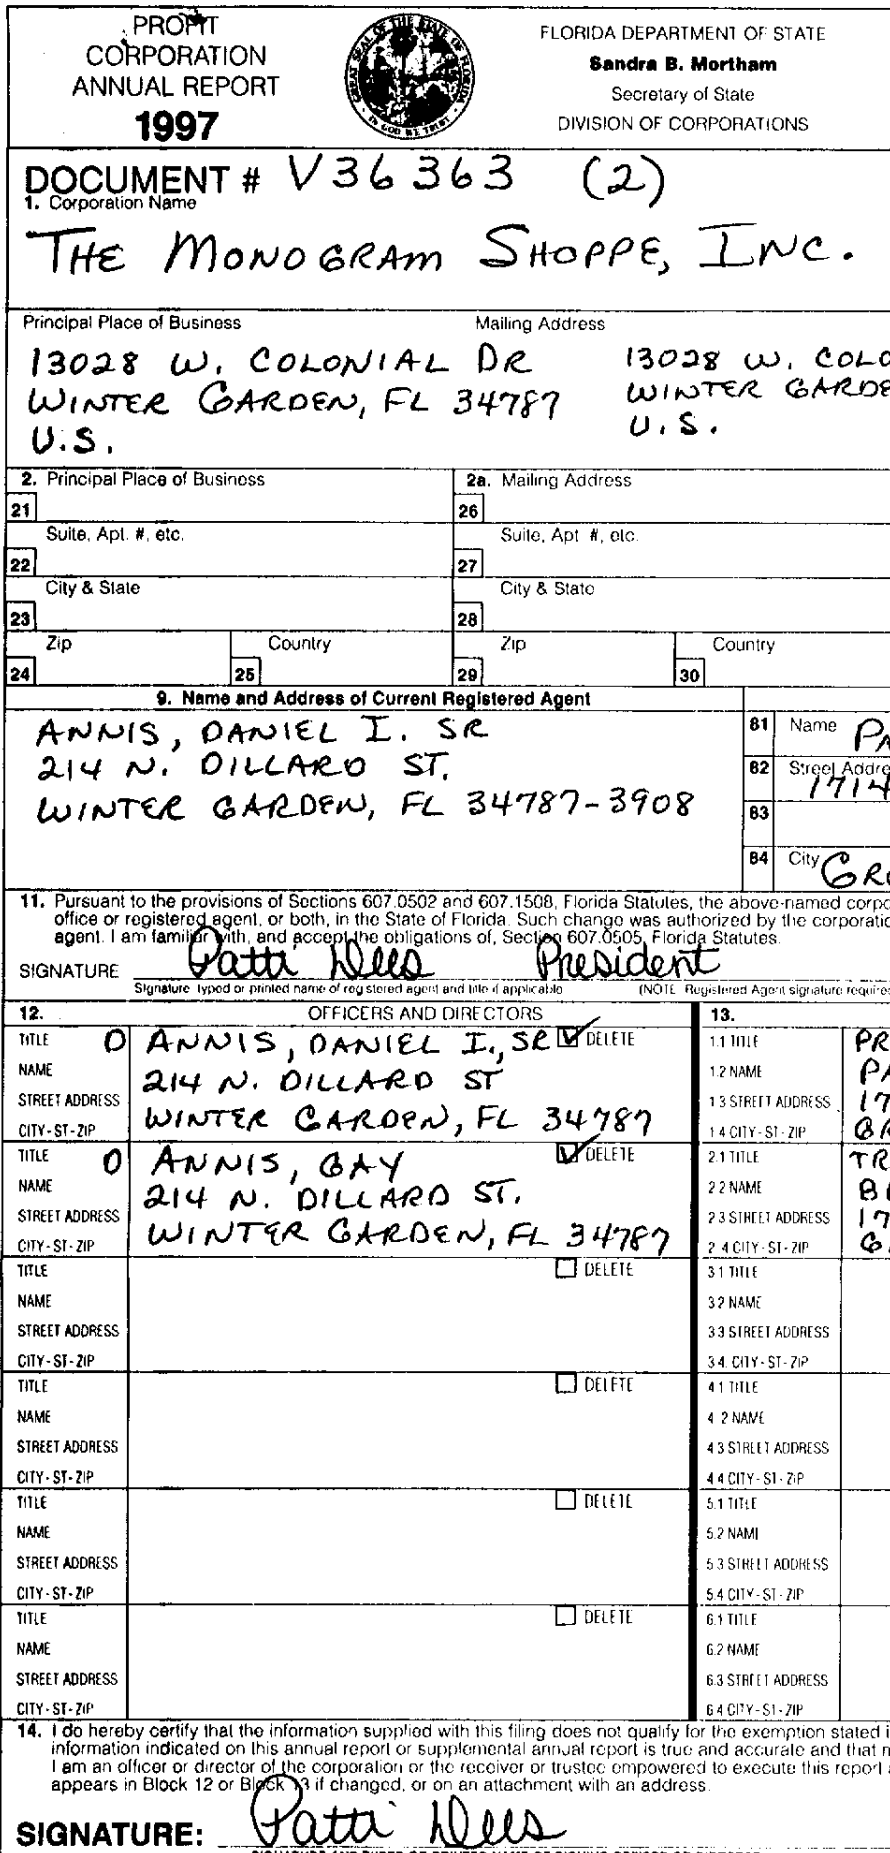 PROFIT
CORPORATION
ANNUAL REPORT
1997
FLORIDA DEPARTMENT OF STATE
Sandra B. Mortham
Secretary of State
DIVISION OF CORPORATIONS
GREAT SEAL OF THE STATE OF FLORIDA
IN GOD WE TRUST
DOCUMENT # V36363 (2)
1. Corporation Name
THE MONOGRAM SHOPPE, INC.
Principal Place of Business
Mailing Address
13028 W. COLONIAL DR
WINTER GARDEN, FL 34787
U.S.
13028 W. COLO
WINTER GARDE
U.S.
2. Principal Place of Business
2a. Mailing Address
21
26
Suite, Apt. #, etc.
Suite, Apt #, etc.
22
27
City & State
City & State
23
28
Zip
Country
Zip
Country
24
25
29
30
9. Name and Address of Current Registered Agent
ANNIS, DANIEL I. SR
214 N. DILLARD ST.
WINTER GARDEN, FL 34787-3908
81 Name PA
82 Street Addre
1714
83
84 City GRO
11. Pursuant to the provisions of Sections 607.0502 and 607.1508, Florida Statutes, the above-named corpo
office or registered agent, or both, in the State of Florida. Such change was authorized by the corporatio
agent. I am familiar with, and accept the obligations of, Section 607.0505, Florida Statutes.
SIGNATURE Patti Dees President
Signature typed or printed name of registered agent and title if applicable
(NOTE Registered Agent signature require
12. OFFICERS AND DIRECTORS
13.
TITLE D ANNIS, DANIEL I., SR DELETE
NAME 214 N. DILLARD ST
STREET ADDRESS
CITY-ST-ZIP WINTER GARDEN, FL 34787
1.1 TITLE PR
1.2 NAME PA
1 3 STREET ADDRESS 17
1 4 CITY-ST-ZIP GR
TITLE D ANNIS, GAY DELETE
NAME 214 N. DILLARD ST.
STREET ADDRESS
CITY-ST-ZIP WINTER GARDEN, FL 34787
2.1 TITLE TR
2 2 NAME
2 3 STREET ADDRESS 17
2 4 CITY-ST-ZIP G
TITLE DELETE
NAME
STREET ADDRESS
CITY-ST-ZIP
3 1 TITLE
3 2 NAME
3 3 STREET ADDRESS
3 4. CITY-ST-ZIP
TITLE DELETE
NAME
STREET ADDRESS
CITY-ST-ZIP
4 1 TITLE
4 2 NAME
4 3 STREET ADDRESS
4 4 CITY-ST-ZIP
TITLE DELETE
NAME
STREET ADDRESS
CITY-ST-ZIP
5.1 TITLE
5.2 NAME
5 3 STREET ADDRESS
5.4 CITY-ST-ZIP
TITLE DELETE
NAME
STREET ADDRESS
CITY-ST-ZIP
6.1 TITLE
6.2 NAME
6.3 STREET ADDRESS
6 4 CITY-ST-ZIP
14. I do hereby certify that the information supplied with this filing does not qualify for the exemption stated i
information indicated on this annual report or supplemental annual report is true and accurate and that m
I am an officer or director of the corporation or the receiver or trustee empowered to execute this report a
appears in Block 12 or Block 13 if changed, or on an attachment with an address.
SIGNATURE: Patti Dees